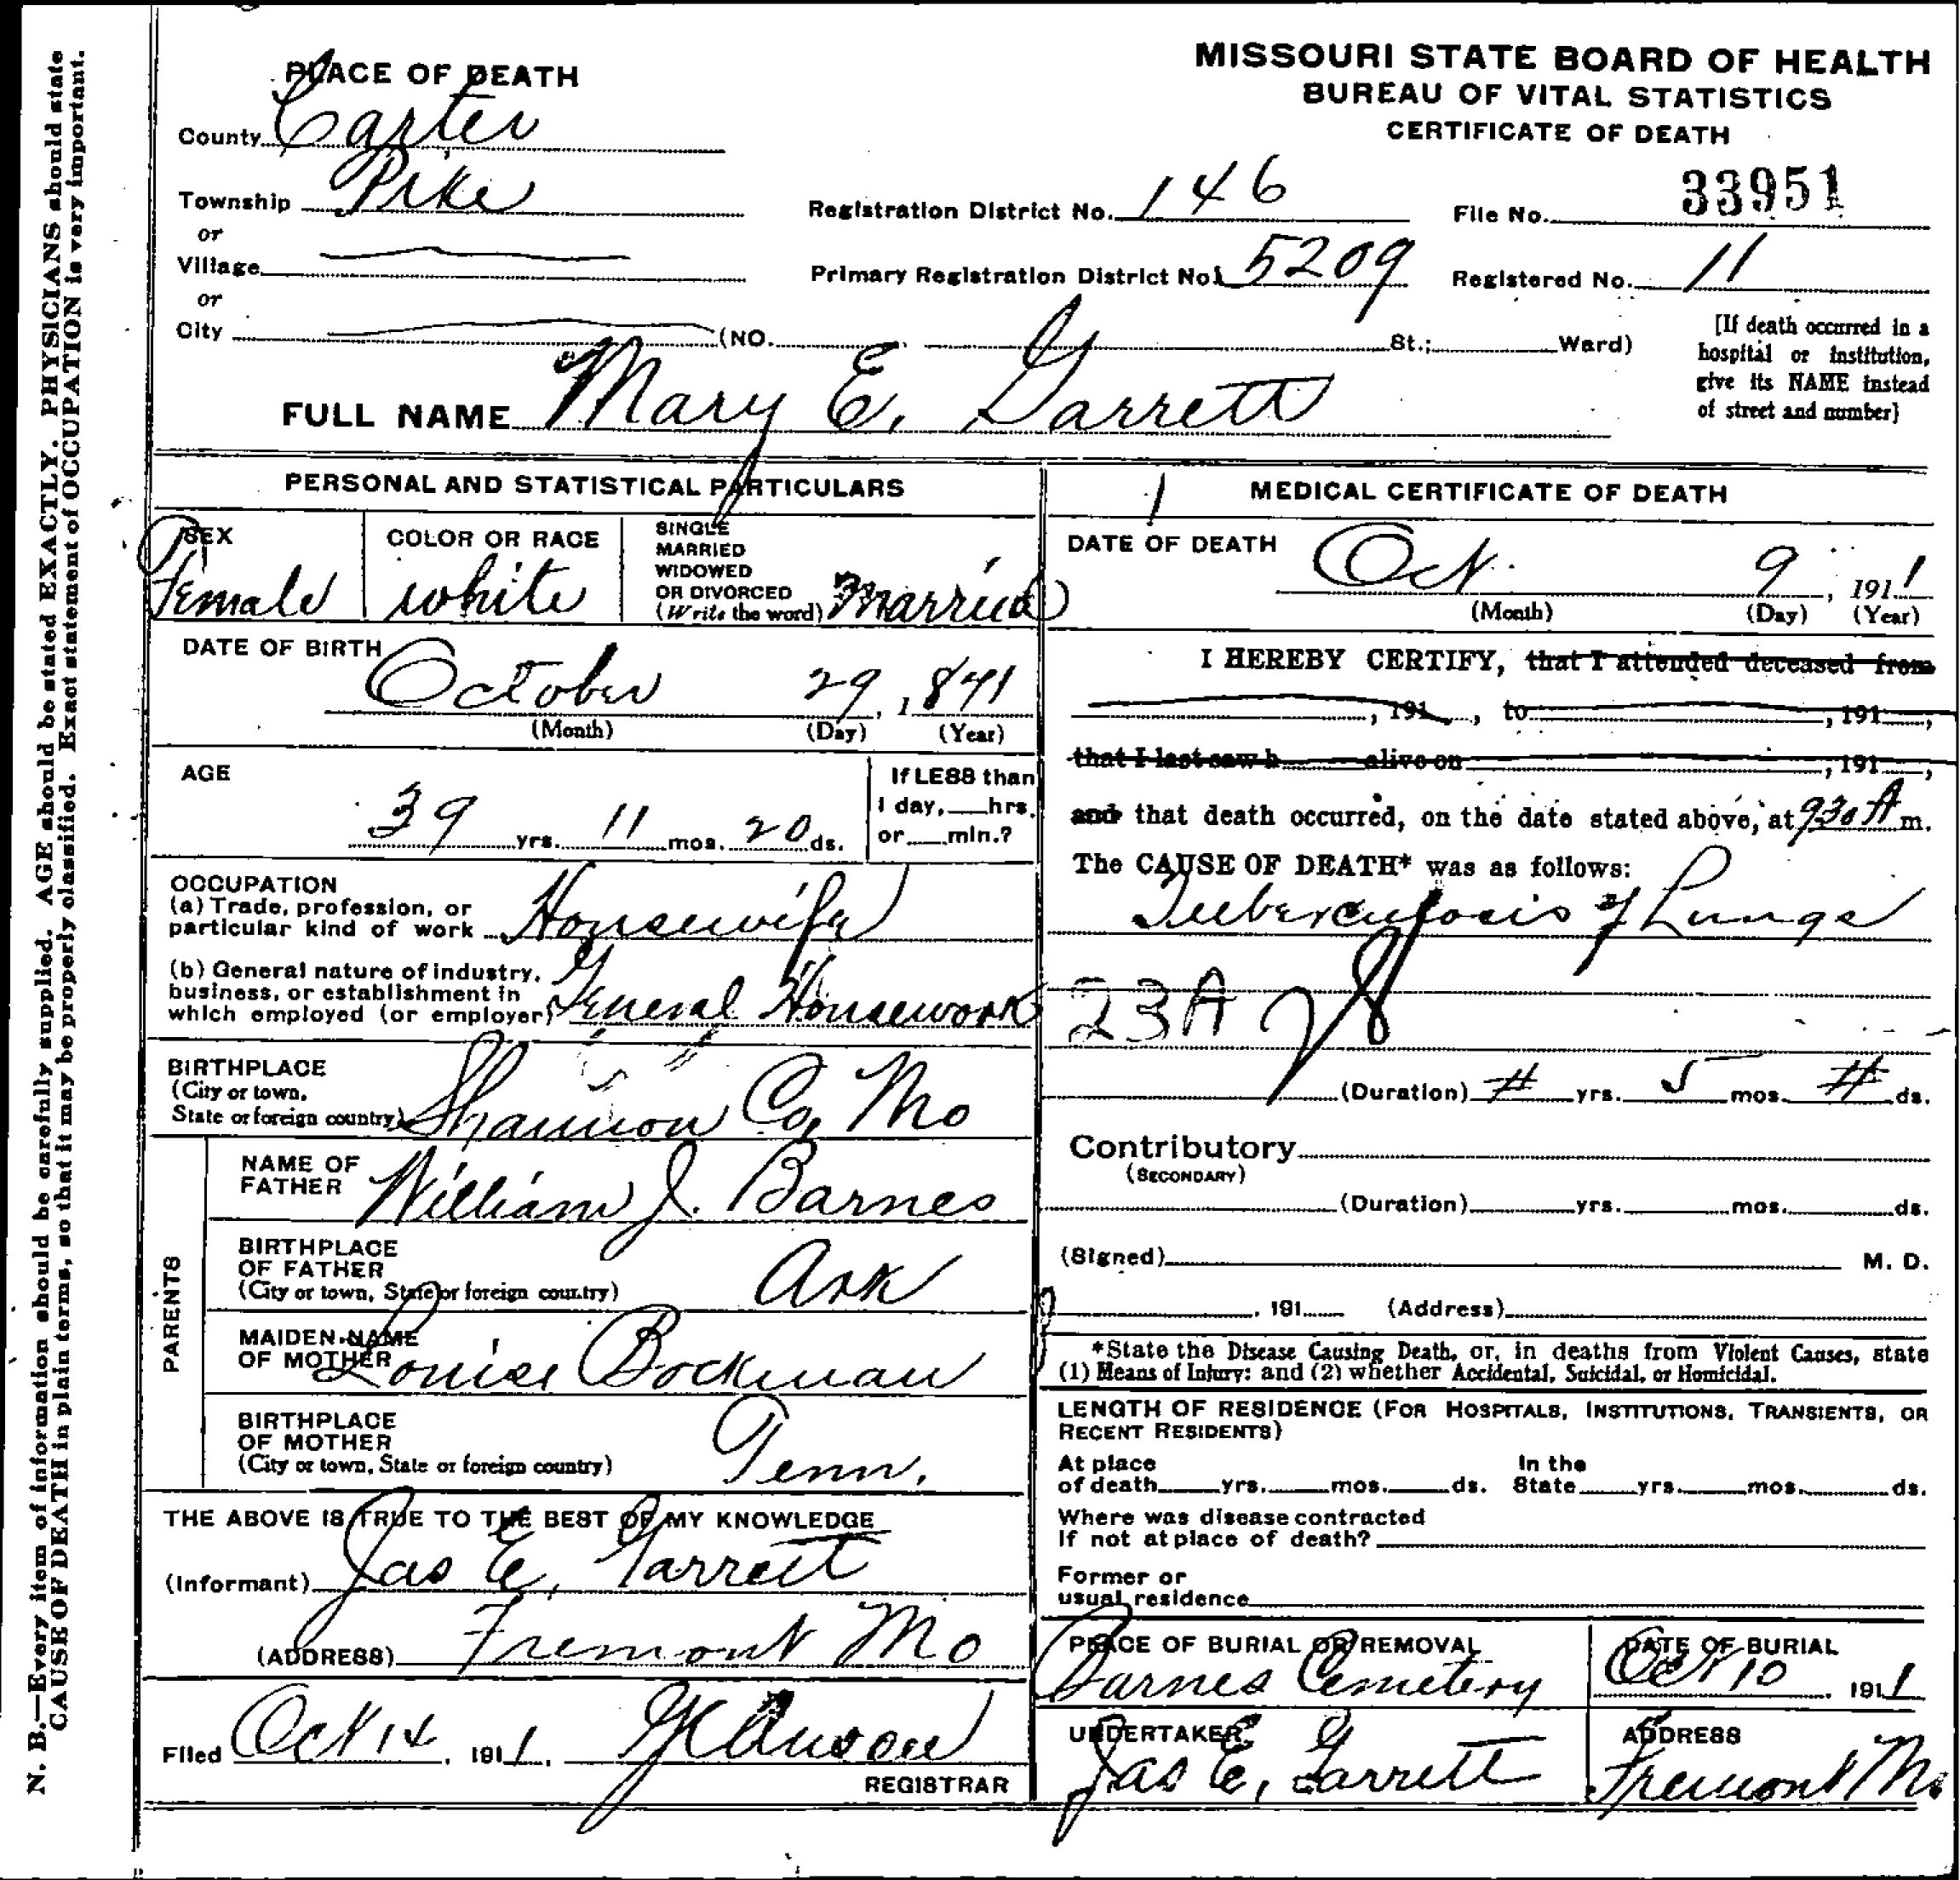 MISSOURI STATE BOARD OF HEALTH
BUREAU OF VITAL STATISTICS
CERTIFICATE OF DEATH
PLACE OF DEATH
County Carter
Township Pike
or
Village
or
City (NO. St.; Ward)
Registration District No. 146
File No. 33951
Primary Registration District No. 5209
Registered No. 11
[If death occurred in a
hospital or institution,
give its NAME instead
of street and number]
FULL NAME Mary E. Garrett
PERSONAL AND STATISTICAL PARTICULARS
SEX
Female
COLOR OR RACE
white
SINGLE
MARRIED
WIDOWED
OR DIVORCED
(Write the word) Married
DATE OF BIRTH
October 29, 1871
(Month) (Day) (Year)
AGE
39 yrs. 11 mos. 20 ds.
If LESS than
1 day, hrs.
or min.?
OCCUPATION
(a) Trade, profession, or
particular kind of work Housewife
(b) General nature of industry,
business, or establishment in
which employed (or employer) General Housework
BIRTHPLACE
(City or town,
State or foreign country) Shannon Co, Mo
PARENTS
NAME OF
FATHER William J. Barnes
BIRTHPLACE
OF FATHER
(City or town, State or foreign country) Ark
MAIDEN NAME
OF MOTHER Louise Bockman
BIRTHPLACE
OF MOTHER
(City or town, State or foreign country) Tenn.
THE ABOVE IS TRUE TO THE BEST OF MY KNOWLEDGE
(Informant) Jas E. Garrett
(ADDRESS) Fremont Mo
Filed Oct 14, 1911,
REGISTRAR
MEDICAL CERTIFICATE OF DEATH
DATE OF DEATH
Oct. 9, 1911
(Month) (Day) (Year)
I HEREBY CERTIFY, that I attended deceased from
, 191 , to , 191 ,
that I last saw h alive on , 191 ,
and that death occurred, on the date stated above, at 930 A m.
The CAUSE OF DEATH* was as follows:
Tuberculosis of Lungs
23A 28
(Duration) # yrs. 5 mos. # ds.
Contributory
(SECONDARY)
(Duration) yrs. mos. ds.
(Signed) M. D.
, 191 (Address)
*State the Disease Causing Death, or, in deaths from Violent Causes, state
(1) Means of Injury; and (2) whether Accidental, Suicidal, or Homicidal.
LENGTH OF RESIDENCE (FOR HOSPITALS, INSTITUTIONS, TRANSIENTS, OR
RECENT RESIDENTS)
At place
of death yrs. mos. ds.
In the
State yrs. mos. ds.
Where was disease contracted
If not at place of death?
Former or
usual residence
PLACE OF BURIAL OR REMOVAL
Barnes Cemetery
DATE OF BURIAL
Oct 10 1911
UNDERTAKER
Jas E, Garrett
ADDRESS
Fremont Mo
N. B.—Every item of information should be carefully supplied. AGE should be stated EXACTLY. PHYSICIANS should state
CAUSE OF DEATH in plain terms, so that it may be properly classified. Exact statement of OCCUPATION is very important.